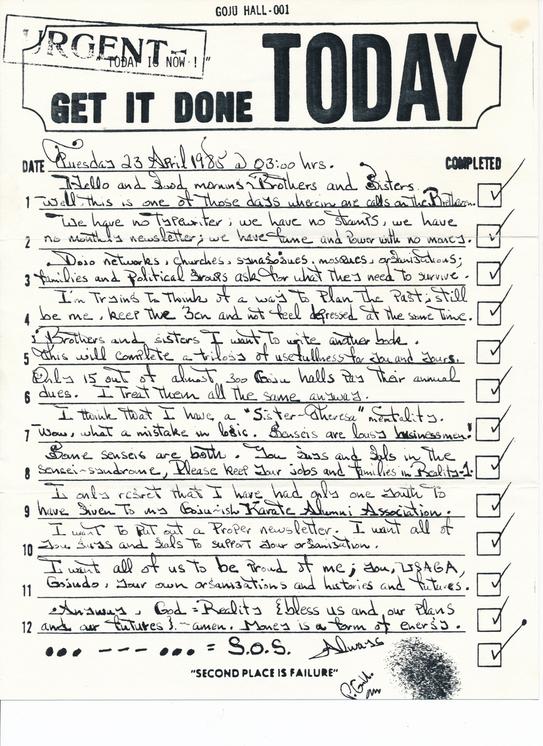 GOJU HALL-001
URGENT-
"TODAY IS NOW!"
GET IT DONE TODAY
DATE Tuesday 23 April 1985 @ 03:00 hrs. COMPLETED
Hello and Good morning Brothers and Sisters.
1 Well this is one of those days wherein are calls on the Brethern.
We have no typewriter; we have no stamps, we have
2 no monthly newsletter; we have fame and Power with no money.
Dojo networks, churches, synagogues, mosques, organisations;
3 families and Political Groups ask for what they need to survive.
I'm Trying to think of a way to Plan the Past; still
4 be me, keep the Zen and not feel depressed at the same time.
Brothers and sisters I want to write another book.
5 This will complete a trilogy of usefullness for you and yours.
Only 15 out of almost 300 Goju halls Pay their annual
6 dues. I Treat them all the same anyway.
I think that I have a "Sister-Theresa" mentality.
7 Wow, what a mistake in logic. Senseis are lousy businessmen!
Some senseis are both. You Guys and Gals in the
8 sensei-syndrome, Please keep your jobs and families in Reality-1.
I only regret that I have had only one Youth to
9 have given to my Goju-ish Karate Alumni Association.
I want to Put out a Proper newsletter. I want all of
10 you Guys and Gals to support your organisation.
I want all of us to be Proud of me; you, USAGA,
11 Gojudo, your own organisations and histories and futures.
Anyway, God = Reality & bless us and, our Plans
12 and, our futures! - amen. Money is a form of energy.
••• --- ••• = S.O.S. Always
"SECOND PLACE IS FAILURE"